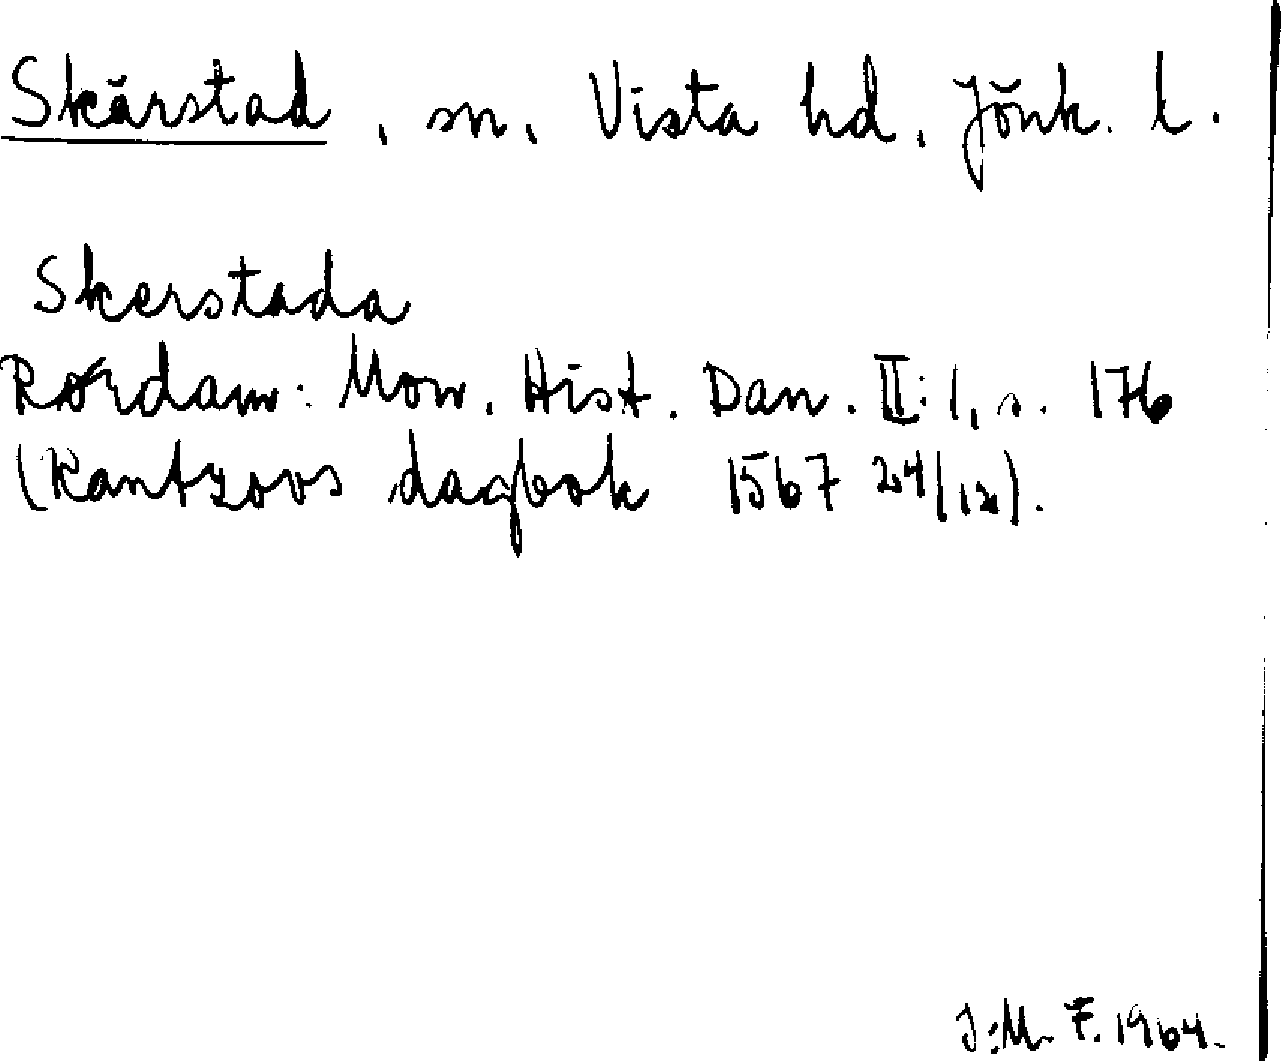 Skärstad, sn, Vista hd, Jönk. l.
Skerstada
Rørdam: Mon. Hist. Dan. II:1, s. 176
(Rantzovs dagbok 1567 24/ix).
J.M. F. 1964.